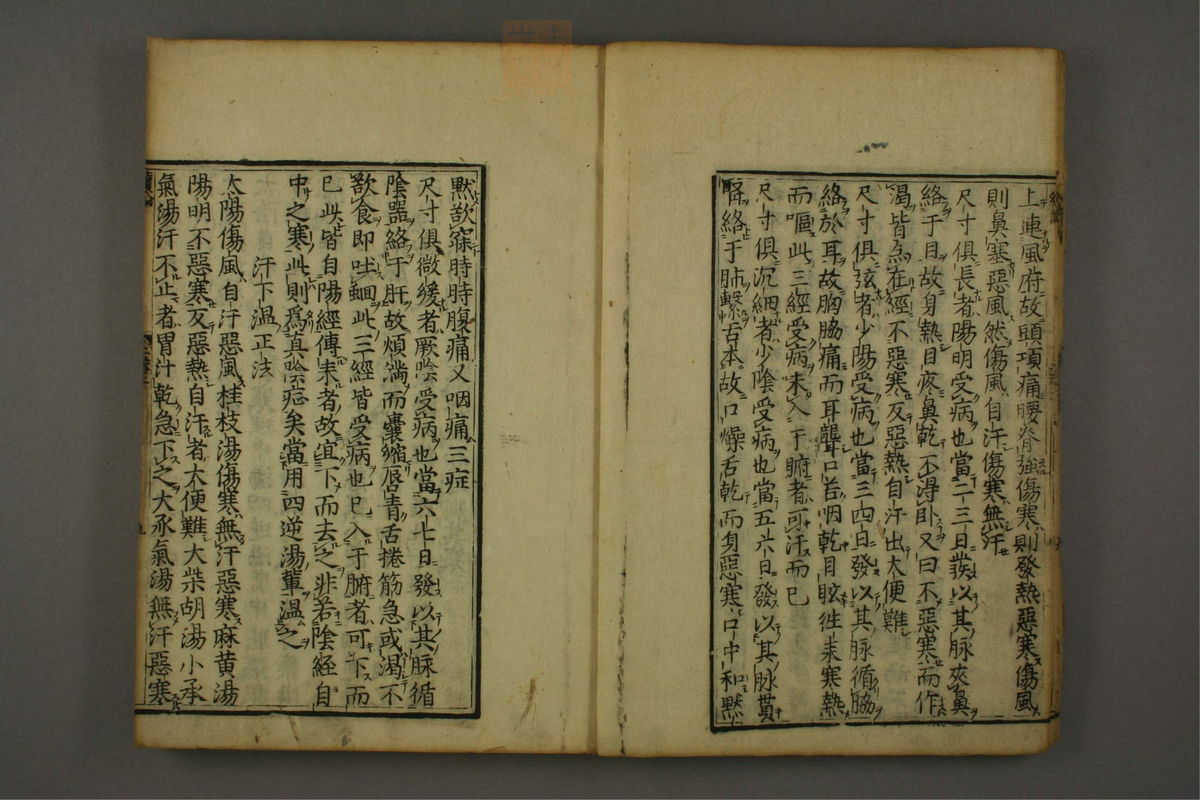 上連風府故頭項痛腰脊強傷寒則發熱惡寒傷風
則鼻塞惡風然傷風自汗傷寒無汗
尺寸俱長者陽明受病也當二三日發以其脉夾鼻
絡于目故身熱目疼鼻乾不得卧又曰不惡寒而作
渴皆為在經不惡寒反惡熱自汗出大便難
尺寸俱弦者少陽受病也當三四日發以其脉循脇
絡於耳故胸脇痛而耳聾口苦咽乾目眩徃来寒熱
而嘔此三經受病未入于腑者可汗而已
尺寸俱沉細者少陰受病也當五六日發以其脉貫
腎絡于肺繫舌本故口燥舌乾而身惡寒口中和默
默欲寐時時腹痛又咽痛三症
尺寸俱微緩者厥陰受病也當六七日發以其脉循
陰器絡于肝故煩滿而囊縮唇青舌捲筋急或渴不
欲食即吐蛔此三經皆受病也已入于腑者可下而
已此皆自陽經傳来者故宜下而去之非若陰経自
中之寒此則爲真陰症矣當用四逆湯輩温之
汗下温正法
太陽傷風自汗惡風桂枝湯傷寒無汗惡寒麻黄湯
陽明不惡寒反惡熱自汗者大便難大柴胡湯小承
氣湯汗不止者胃汁乾急下之大承氣湯無汗惡寒